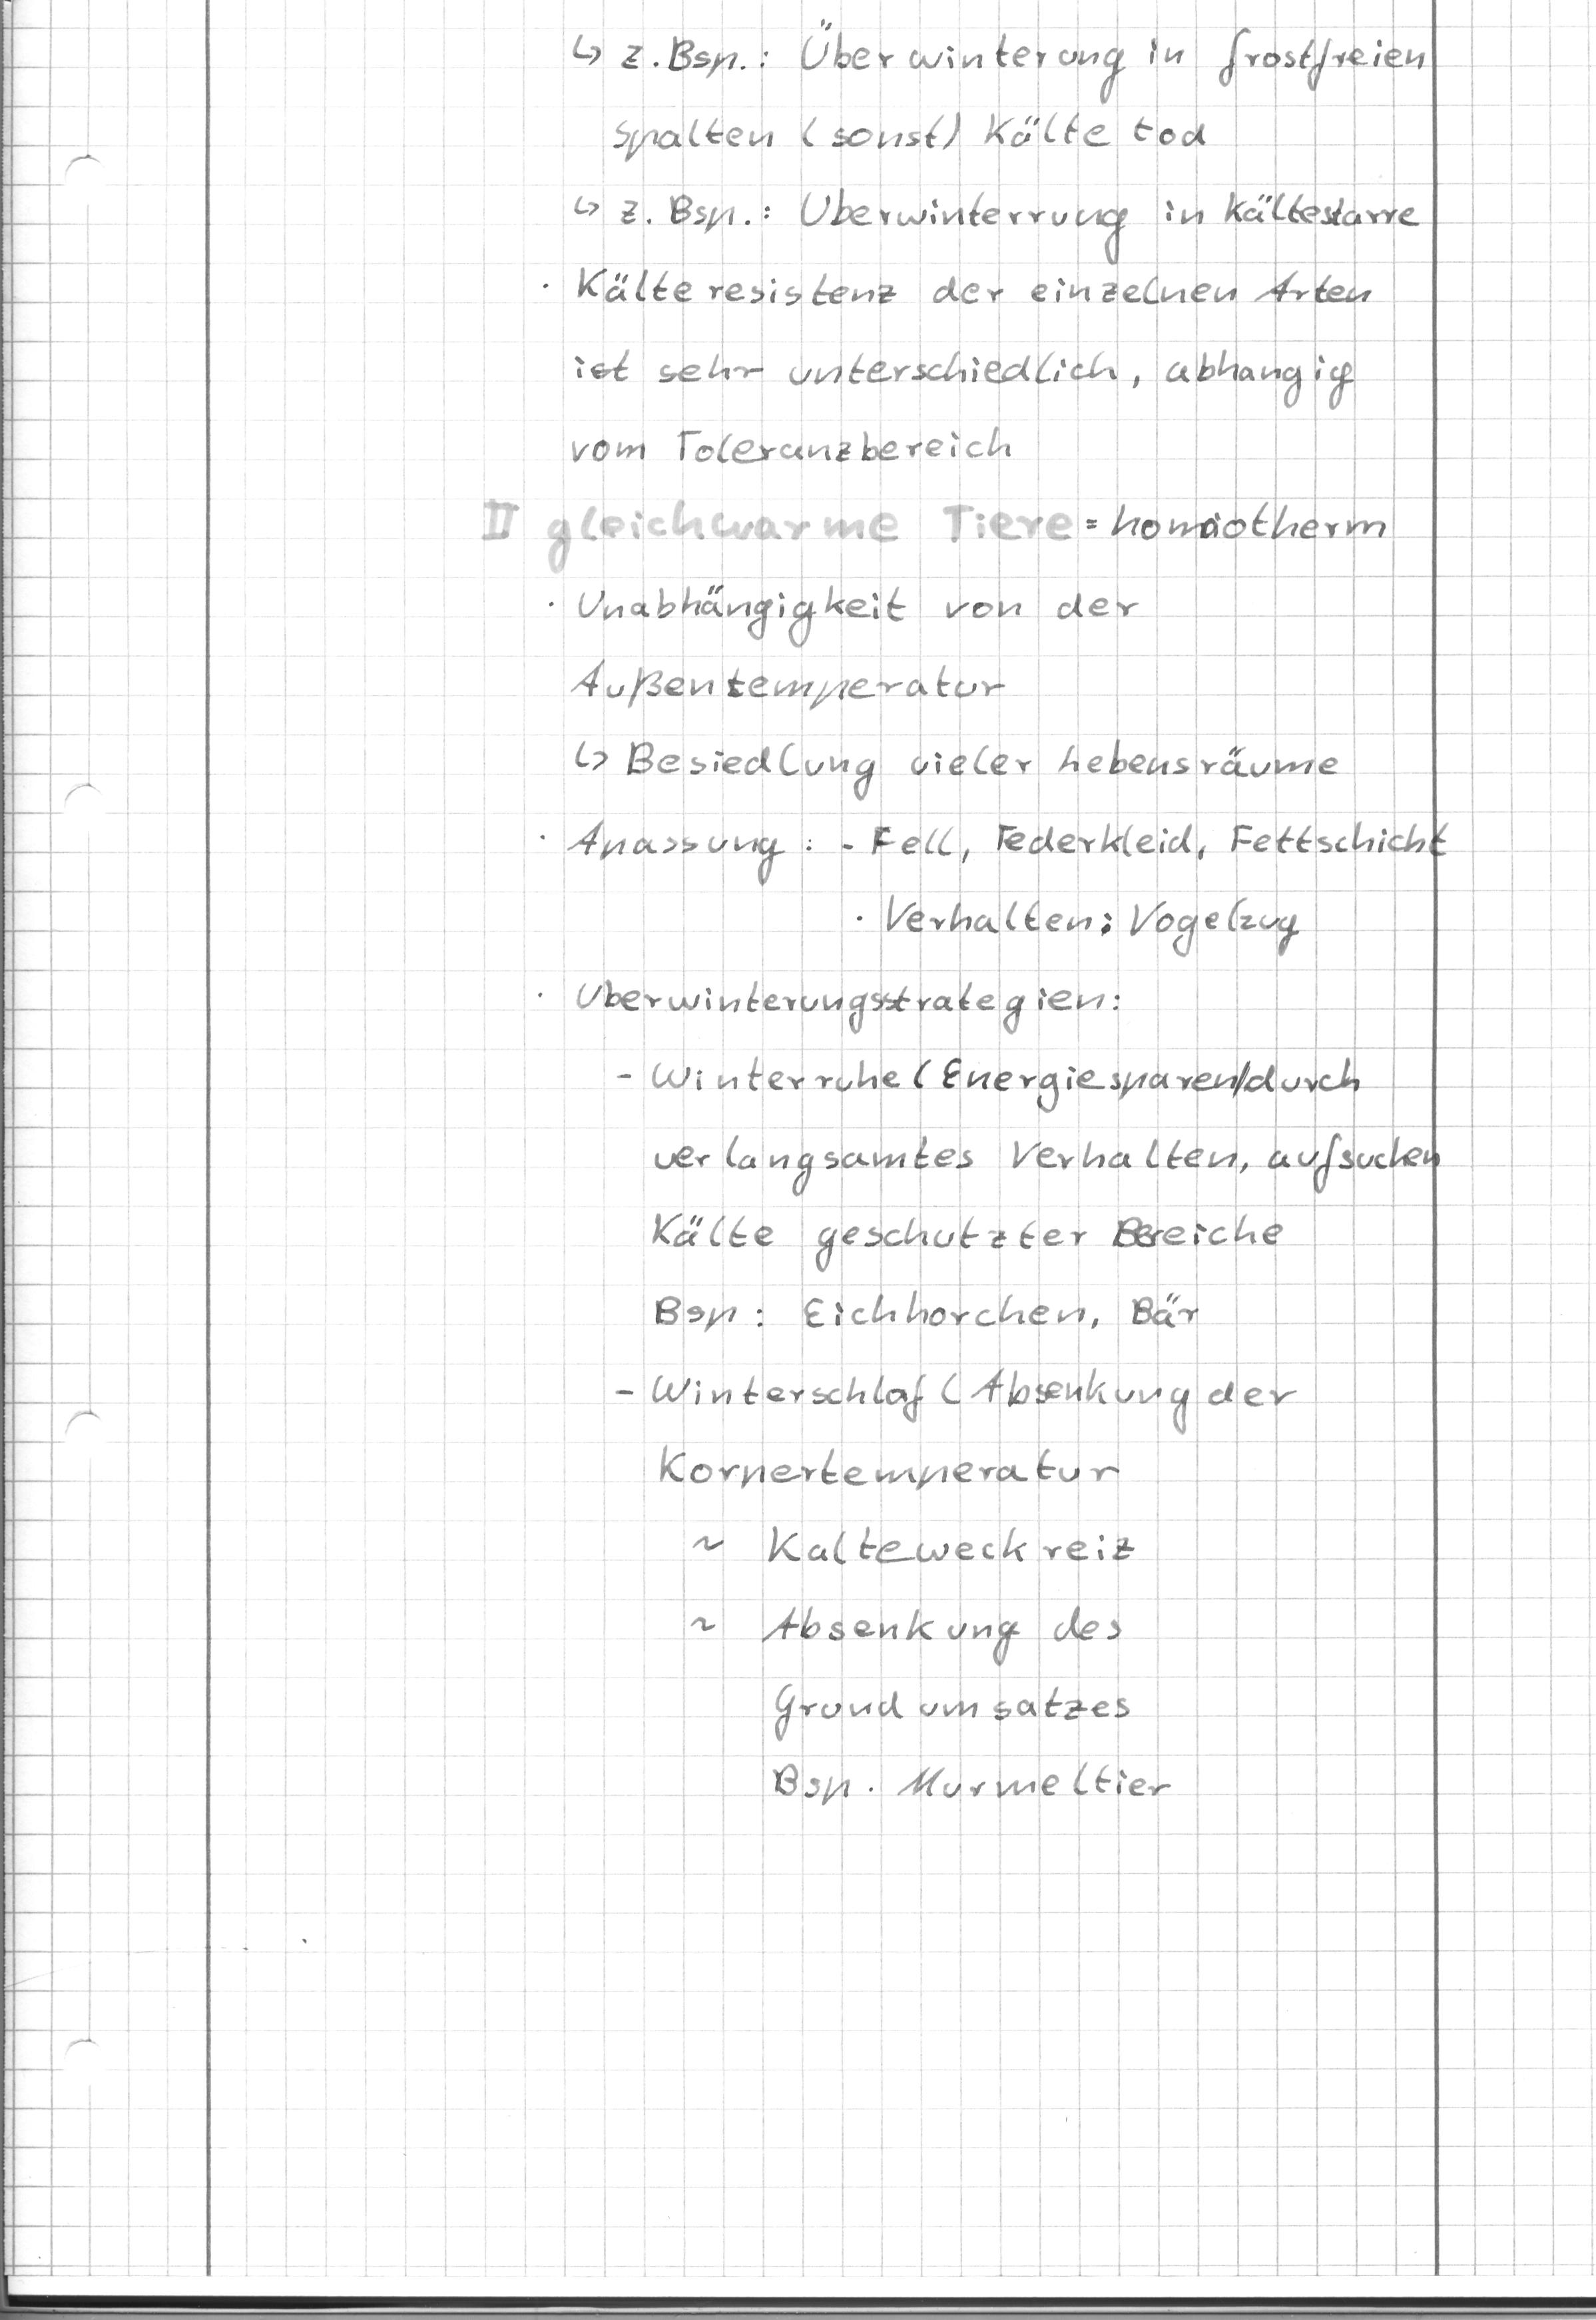 ↳ z.Bsp.: Überwinterung in frostfreien
Spalten (sonst) Kälte tod
↳ z.Bsp.: Uberwinterrung in Kältestarre
· Kälteresistenz der einzelnen Arten
ist sehr unterschiedlich, abhangig
vom Toleranzbereich
II gleichwarme Tiere = homoiotherm
· Unabhängigkeit von der
Außentemperatur
↳ Besiedlung vieler Lebensräume
· Anassung: - Fell, Federkleid, Fettschicht
· Verhalten: Vogelzug
· Uberwinterungsstrategien:
- Winterruhe (Energiesparen/durch
verlangsamtes Verhalten, aufsuchen
Kälte geschutzter Bereiche
Bsp: Eichhorchen, Bär
- Winterschlaf (Absenkung der
Korpertemperatur
~ Kalteweckreiz
~ Absenkung des
Grundumsatzes
Bsp. Murmeltier